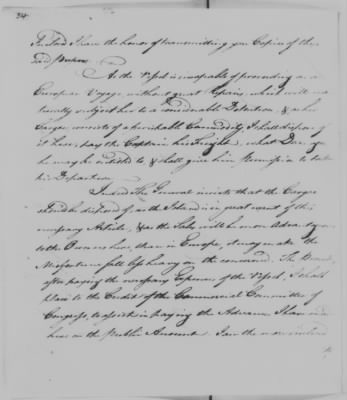 34
I have the honor of transmitting you Copies of the
said Papers
As the Vessel is incapable of proceeding on a
European Voyage without great Repairs, which will
subject her to a considerable Detention, & as her
Cargo consists of a perishable Commodity, I shall dispose of
it here, pay the Captain his Freight, what Damages
he may be entitled to & shall give him Permission to take
his Departure
Indeed The General insists that the Cargo
should be disposed of, as the Island is in great want of this
necessary Article, & as the Sales will be more Advantageous
to the Owners here, than in Europe, it may make the
Misfortune fall less heavy on the concerned. The
after paying the necessary Expences of the Vessel, I shall
place to the Credit of the Commercial Committee of
Congress, to assist in paying the Advances I have made
here on the Public Account. I am the more